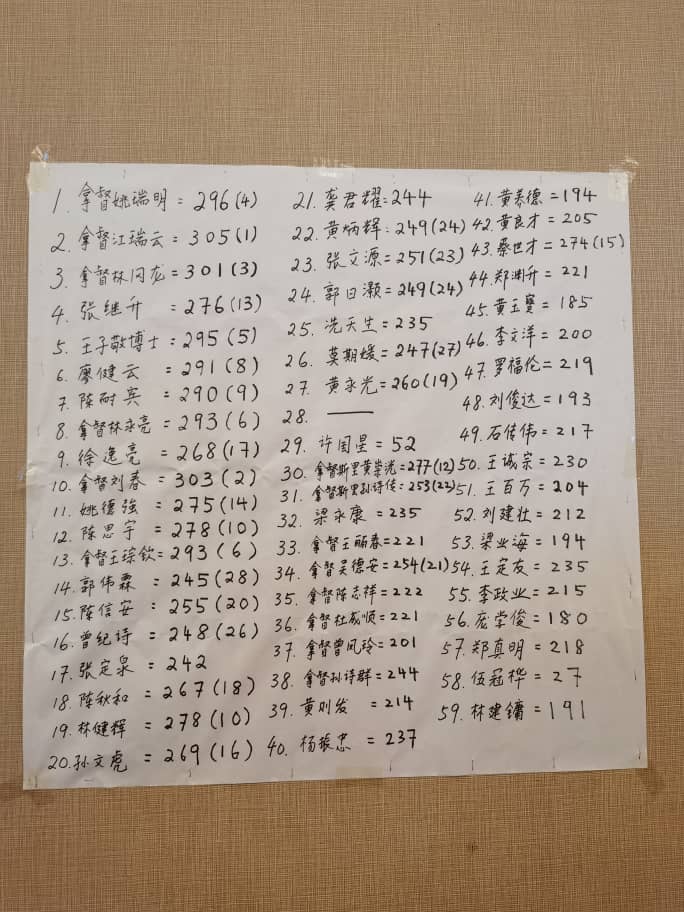 1. 拿督姚瑞明 = 296(4)
2. 拿督江瑞云 = 305(1)
3. 拿督林闪龙 = 301(3)
4. 张继升 = 276(13)
5. 王子敬博士 = 295(5)
6. 廖健云 = 291(8)
7. 陈耐宾 = 290(9)
8. 拿督林永亮 = 293(6)
9. 徐逢亮 = 268(17)
10. 拿督刘春 = 303(2)
11. 姚德强 = 275(14)
12. 陈思宇 = 278(10)
13. 拿督王琮钦 = 293(6)
14. 郭伟霖 = 245(28)
15. 陈信安 = 255(20)
16. 曾纪诗 = 248(26)
17. 张定泉 = 242
18. 陈秋和 = 267(18)
19. 林健辉 = 278(10)
20. 孙文虎 = 269(16)
21. 龚君耀 = 244
22. 黄炳辉 = 249(24)
23. 张文源 = 251(23)
24. 郭日灏 = 249(24)
25. 冼天生 = 235
26. 莫期媛 = 247(27)
27. 黄永光 = 260(19)
28. ——
29. 许国星 = 52
30. 拿督斯里黄崇洸 = 277(12)
31. 拿督斯里孙诗传 = 253(22)
32. 梁永康 = 235
33. 拿督王丽春 = 221
34. 拿督吴德安 = 254(21)
35. 拿督陈志祥 = 222
36. 拿督杜成顺 = 221
37. 拿督曾凤玲 = 201
38. 拿督孙诗群 = 244
39. 黄则发 = 214
40. 杨振忠 = 237
41. 黄泰德 = 194
42. 黄良才 = 205
43. 蔡世才 = 274(15)
44. 郑渊升 = 221
45. 黄玉宝 = 185
46. 李文洋 = 200
47. 罗福伦 = 219
48. 刘俊达 = 193
49. 石传伟 = 217
50. 王诚宗 = 230
51. 王百万 = 204
52. 刘建壮 = 212
53. 梁业海 = 194
54. 王定友 = 235
55. 李政业 = 215
56. 庞学俊 = 180
57. 郑真明 = 218
58. 伍冠桦 = 27
59. 林建镛 = 191